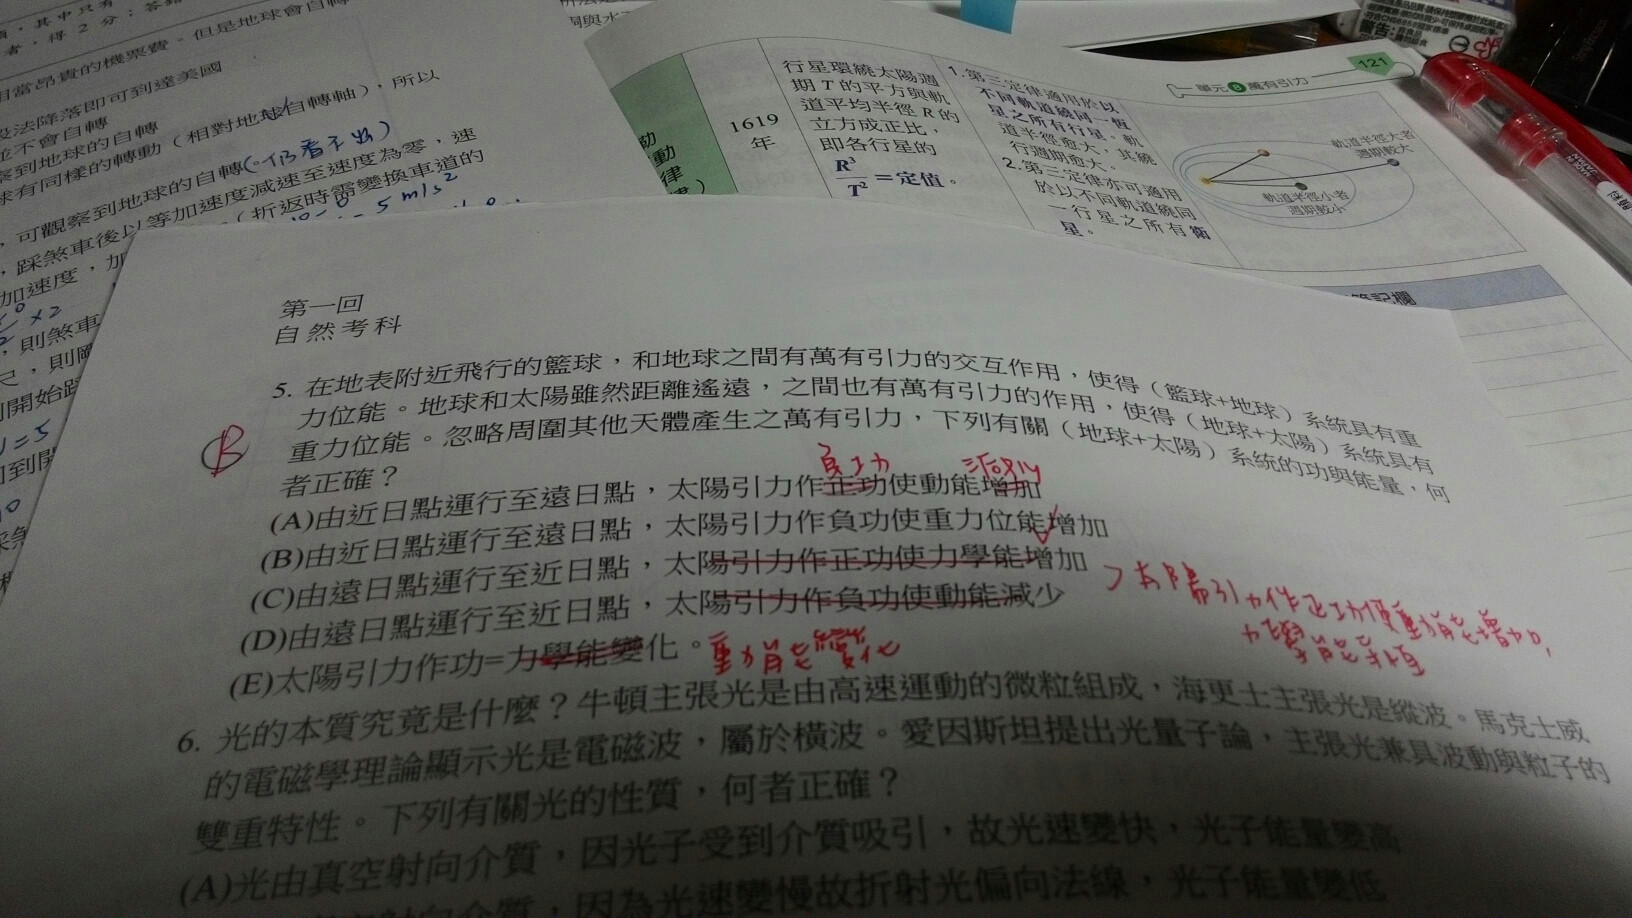 相當昂貴的機票費。但是地球會自轉
設法降落即可到達美國
並不會自轉
察到地球的自轉
球有同樣的轉動（相對地球自轉軸），所以
，可觀察到地球的自轉(仍看不出)
，踩煞車後以等加速度減速至速度為零，速
加速度，加
（折返時需變換車道的
5 m/s²
，則煞車
1619
年
行星環繞太陽週
期 T 的平方與軌
道平均半徑 R 的
立方成正比，
即各行星的
R³/T²=定值。
1.第三定律適用於以
不同軌道繞同一恆
星之所有行星。軌
道半徑愈大，其繞
行週期愈大。
2.第三定律亦可適用
於以不同軌道繞同
一行星之所有衛
星。
單元 8 萬有引力
121
軌道半徑大者
週期較大
軌道半徑小者
週期較小
筆記欄
第一回
自然考科
5. 在地表附近飛行的籃球，和地球之間有萬有引力的交互作用，使得（籃球+地球）系統具有重
力位能。地球和太陽雖然距離遙遠，之間也有萬有引力的作用，使得（地球+太陽）系統具有
重力位能。忽略周圍其他天體產生之萬有引力，下列有關（地球+太陽）系統的功與能量，何
者正確？
B
負功 減少
(A)由近日點運行至遠日點，太陽引力作正功使動能增加
(B)由近日點運行至遠日點，太陽引力作負功使重力位能增加
(C)由遠日點運行至近日點，太陽引力作正功使力學能增加
(D)由遠日點運行至近日點，太陽引力作負功使動能減少
太陽引力作正功使動能增加,
力學能守恆
(E)太陽引力作功=力學能變化。動能變化
6. 光的本質究竟是什麼？牛頓主張光是由高速運動的微粒組成，海更士主張光是縱波。馬克士威
的電磁學理論顯示光是電磁波，屬於橫波。愛因斯坦提出光量子論，主張光兼具波動與粒子的
雙重特性。下列有關光的性質，何者正確？
(A)光由真空射向介質，因光子受到介質吸引，故光速變快，光子能量變高
射向介質，因為光速變慢故折射光偏向法線，光子能量變低